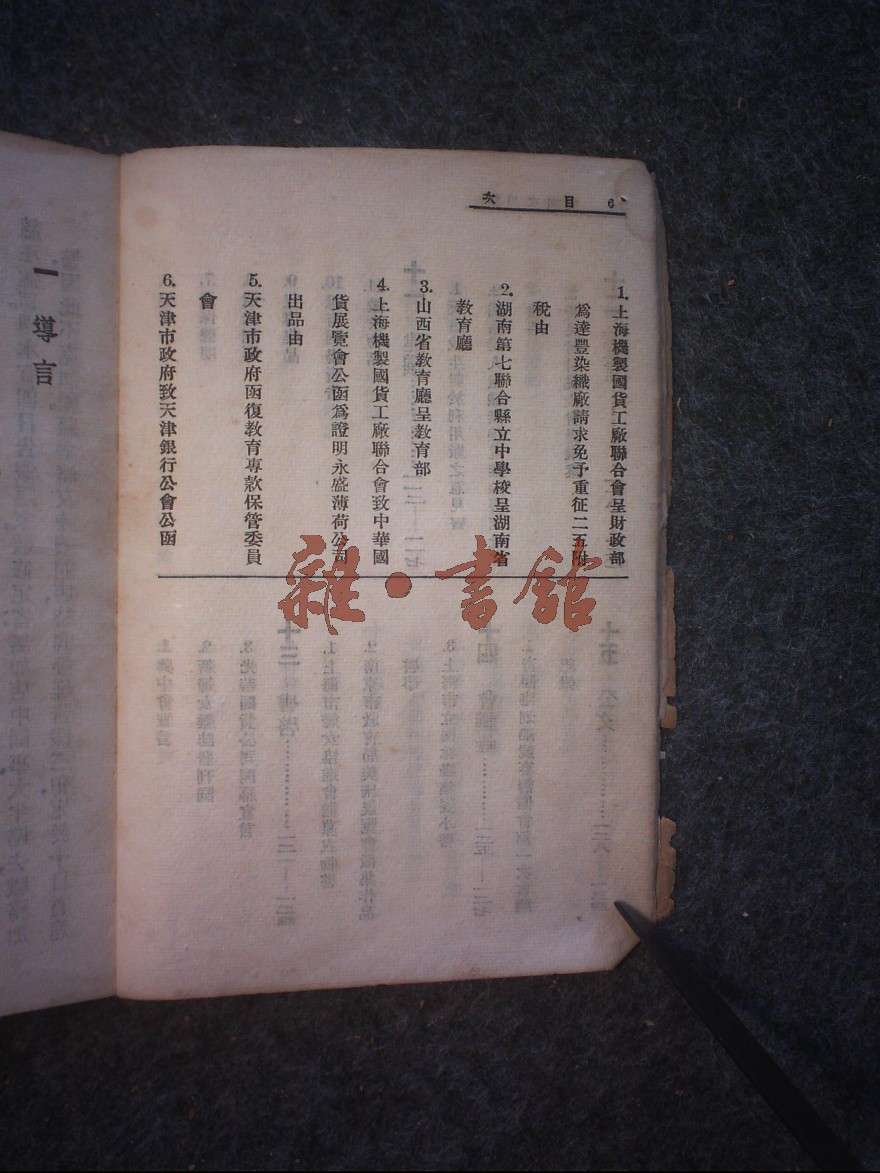 6 目次
1. 上海機製國貨工廠聯合會呈財政部
爲達豐染織廠請求免予重征二五附
稅由
2. 湖南第七聯合縣立中學校呈湖南省
教育廳
3. 山西省教育廳呈教育部
4. 上海機製國貨工廠聯合會致中華國
貨展覽會公函爲證明永盛薄荷公司
出品由
5. 天津市政府函復教育專款保管委員
會
6. 天津市政府致天津銀行公會公函
一 導言
雜·書館